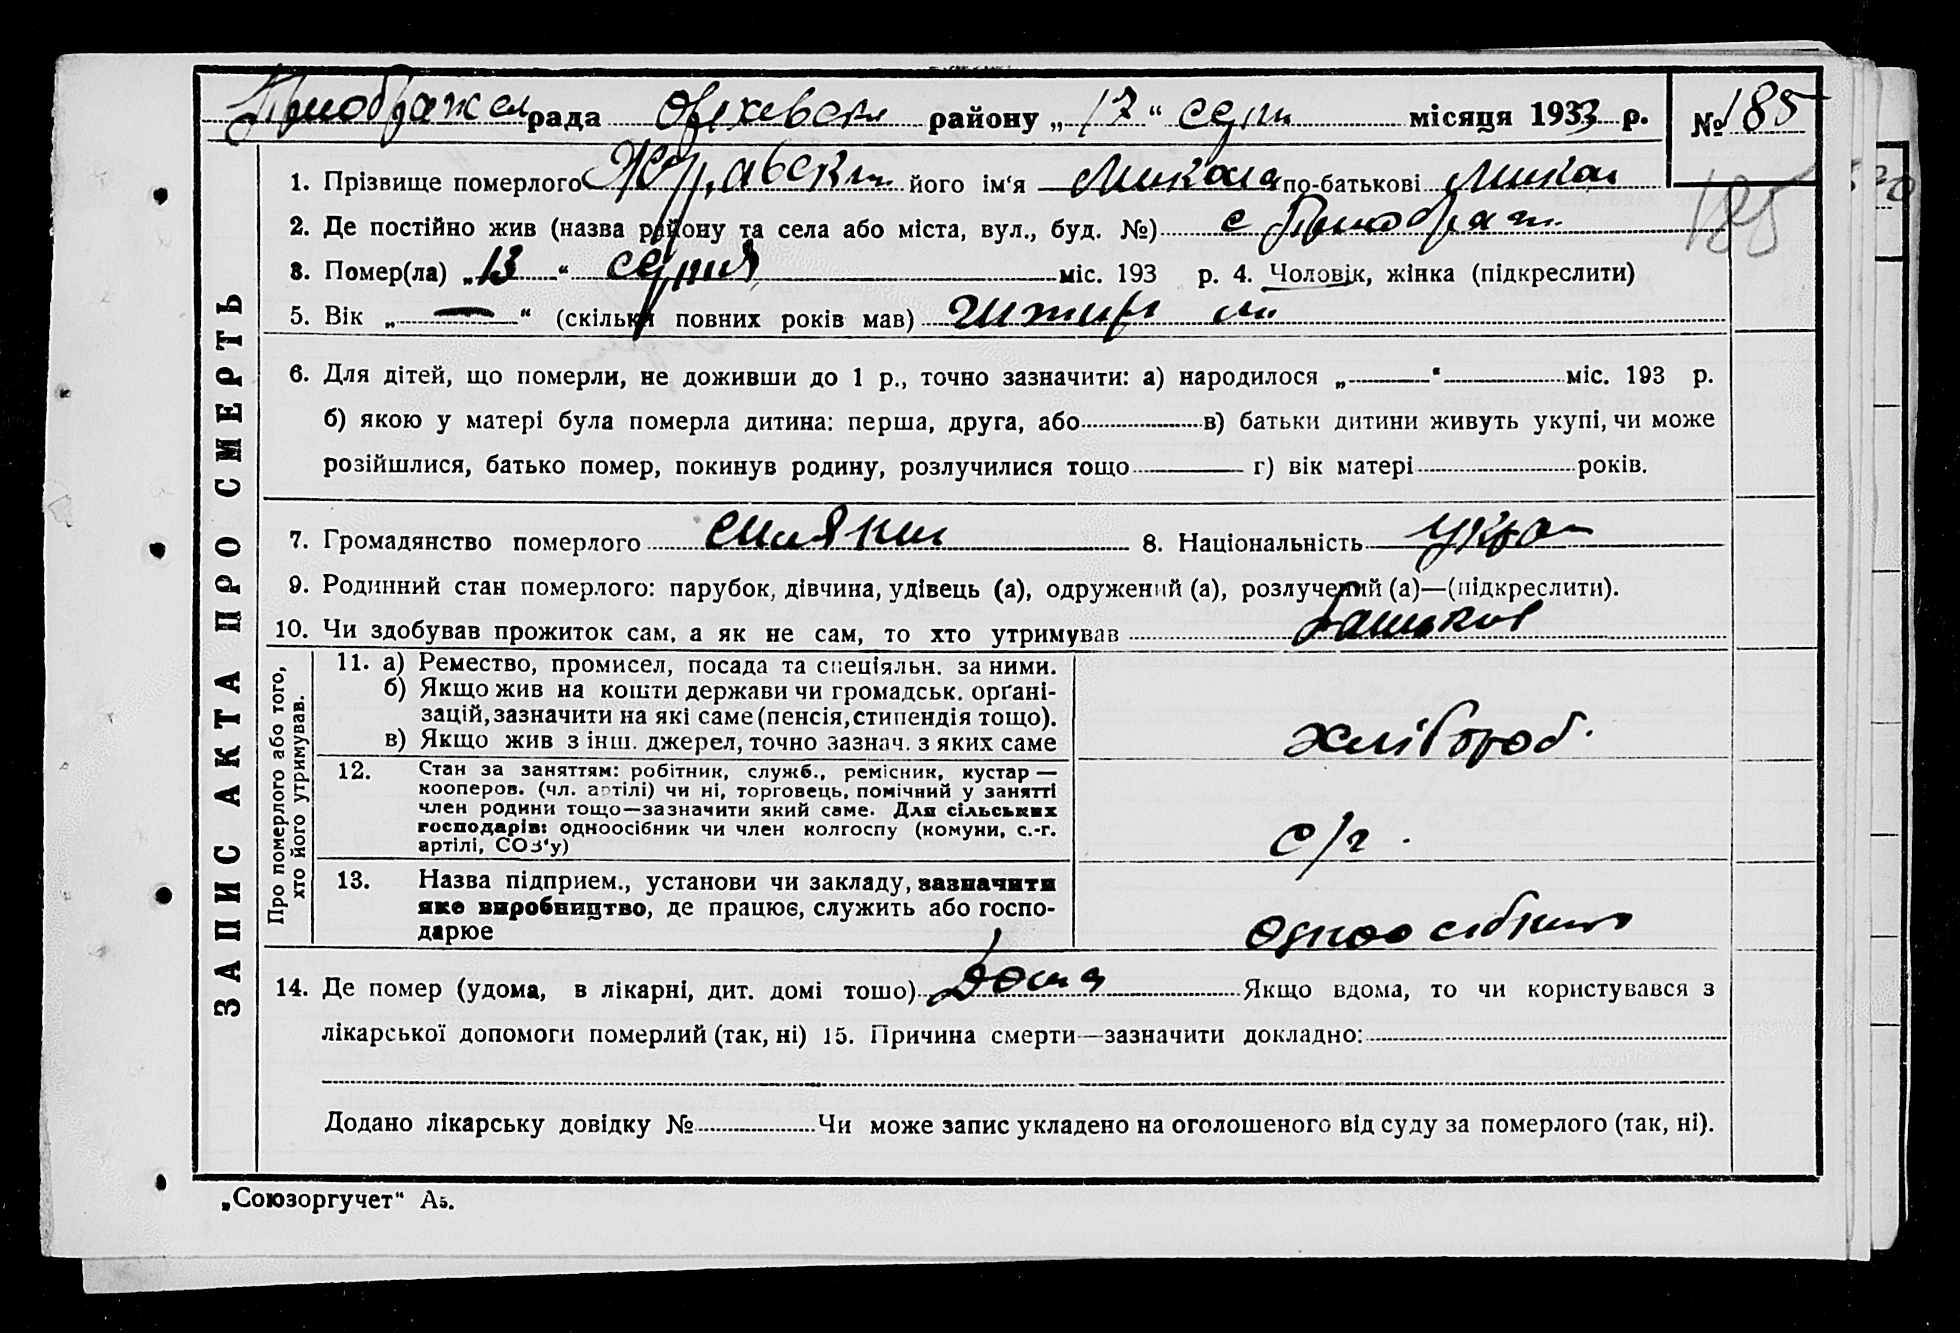 Преображен рада Оріхівськ району „17“ серп місяця 1933 р. № 185
1. Прізвище померлого його ім‘я Микола по-батькові Микол
185
2. Де постійно жив (назва району та села або міста, вул., буд. №) с Преображ
3. Помер(ла) „13“ серпня міс. 193 р. 4. Чоловік, жінка (підкреслити)
5. Вік „—“ (скільки повних років мав)
6. Для дітей, що померли, не доживши до 1 р., точно зазначити: а) народилося „ “ міс. 193 р.
б) якою у матері була померла дитина: перша, друга, або в) батьки дитини живуть укупі, чи може
розійшлися, батько помер, покинув родину, розлучилися тощо г) вік матері років.
7. Громадянство померлого 8. Національність укра
9. Родинний стан померлого: парубок, дівчина, удівець (а), одружений (а), розлучений (а)—(підкреслити).
10. Чи здобував прожиток сам, а як не сам, то хто утримував батьков
11. а) Ремество, промисел, посада та спеціяльн. за ними.
б) Якщо жив на кошти держави чи громадськ. орґані-
зацій, зазначити на які саме (пенсія, стипендія тощо).
в) Якщо жив з інш. джерел, точно зазнач. з яких саме
хлібороб.
12. Стан за заняттям: робітник, служб., ремісник, кустар —
кооперов. (чл. артілі) чи ні, торговець, помічний у занятті
член родини тощо—зазначити який саме. Для сільських
господарів: одноосібник чи член колгоспу (комуни, с.-г.
артілі, СОЗ‘у)
с/г.
13. Назва підприєм., установи чи закладу, зазначити
яке виробництво, де працює, служить або госпо-
дарює
одноосібник
14. Де помер (удома, в лікарні, дит. домі тошо) Дома Якщо вдома, то чи користувався з
лікарської допомоги померлий (так, ні) 15. Причина смерти—зазначити докладно:
Додано лікарську довідку № Чи може запис укладено на оголошеного від суду за померлого (так, ні).
ЗАПИС АКТА ПРО СМЕРТЬ
Про померлого або того,
хто його утримував.
„Союзоргучет“ А5.